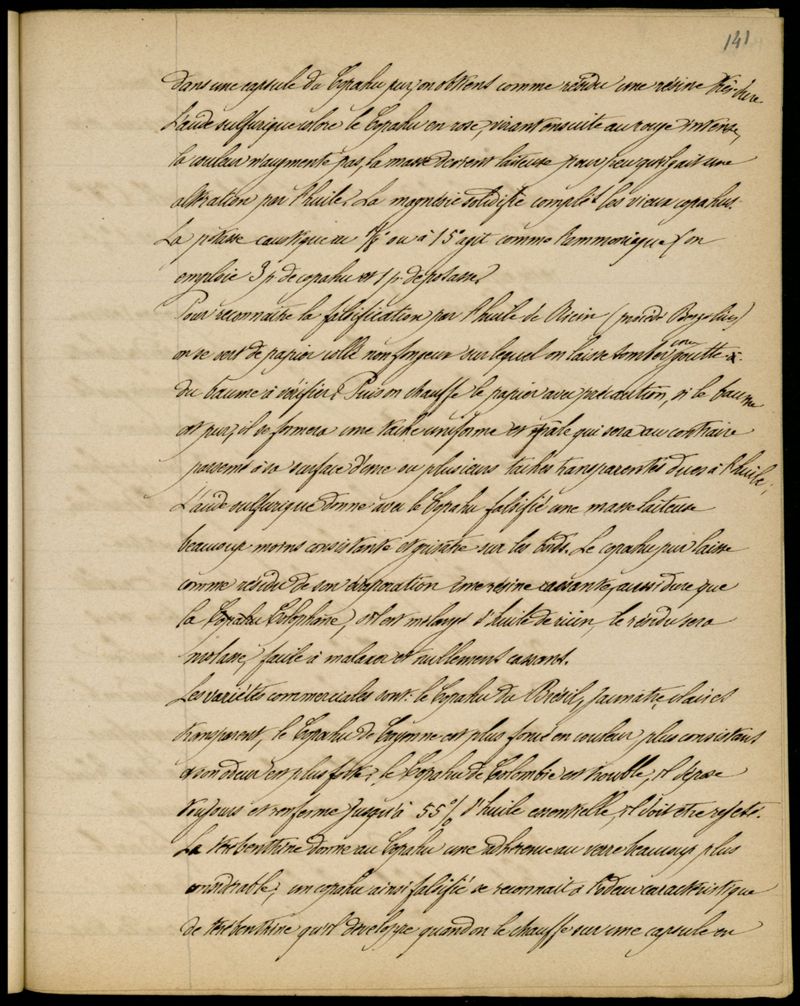 141
dans une capsule du Copahu pur, on obtient comme résidu une résine très dure
L'acide sulfurique colore le Copahu en rose, virant ensuite au rouge intense,
la couleur n'augmente pas, la masse devient laiteuse pour peu qu'il y ait une
altération par l'huile. La magnésie solidifie complèt les vieux copahus.
La potasse caustique au 1/6 ou à 15° agit comme l'ammoniaque (on
emploie 3 p de copahu et 1 p. de potasse)
Pour reconnaître la falsification par l'huile de Ricin (procédé
on se sert de papier collé non fongeux sur lequel on laisse tomber une goutte
du baume à vérifier. Puis on chauffe le papier avec précaution, si le baume
est pur, il se formera une tache uniforme et qui sera au contraire
parsemé à sa surface d'une ou plusieurs taches transparentes dues à l'huile.
L'acide sulfurique donne avec le Copahu falsifié une masse laiteuse
beaucoup moins consistante et grisâtre sur les bords. Le copahu pur laisse
comme résidu de son évaporation une résine cassante, aussi dure que
la Colophane, s'il est mélangé d'huile de ricin, le résidu sera
molasse, facile à malaxer et nullement cassant.
Les variétés commerciales sont: le Copahu du Brésil, jaunâtre, clair et
transparent, le Copahu de Cayenne est plus foncé en couleur plus consistant
et son odeur est plus forte; le Copahu de Colombie est trouble, il dépose
toujours et renferme jusqu'à 55% d'huile essentielle, il doit être rejeté.
La térébenthine donne au Copahu une adhérence au verre beaucoup plus
considérable; un copahu ainsi falsifié se reconnait à l'odeur caractéristique
de térébenthine qu'il développe quand on le chauffe sur une capsule en